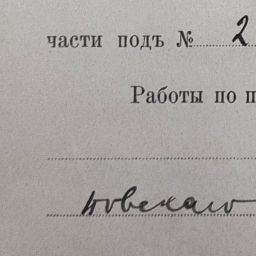 части подъ № 2
Работы по п
новскаго